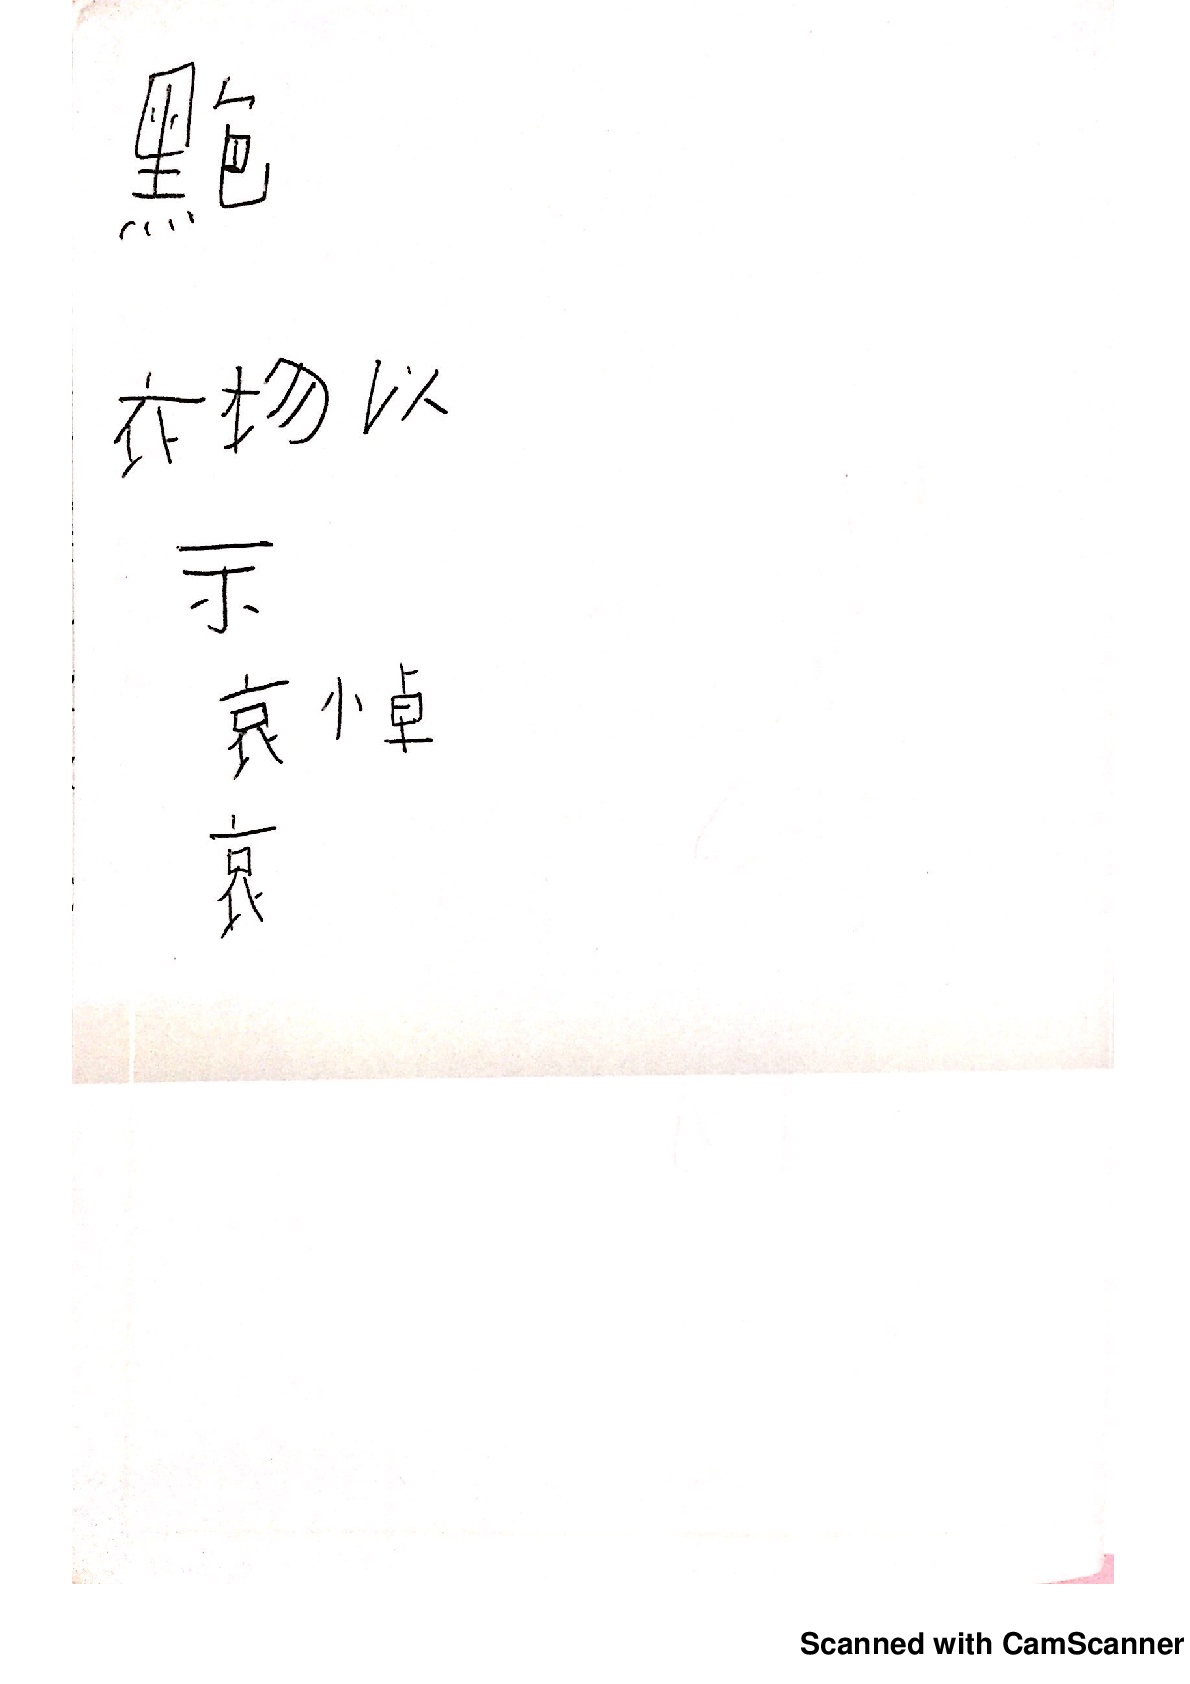 黑色
衣物以
示
哀悼
哀
Scanned with CamScanner